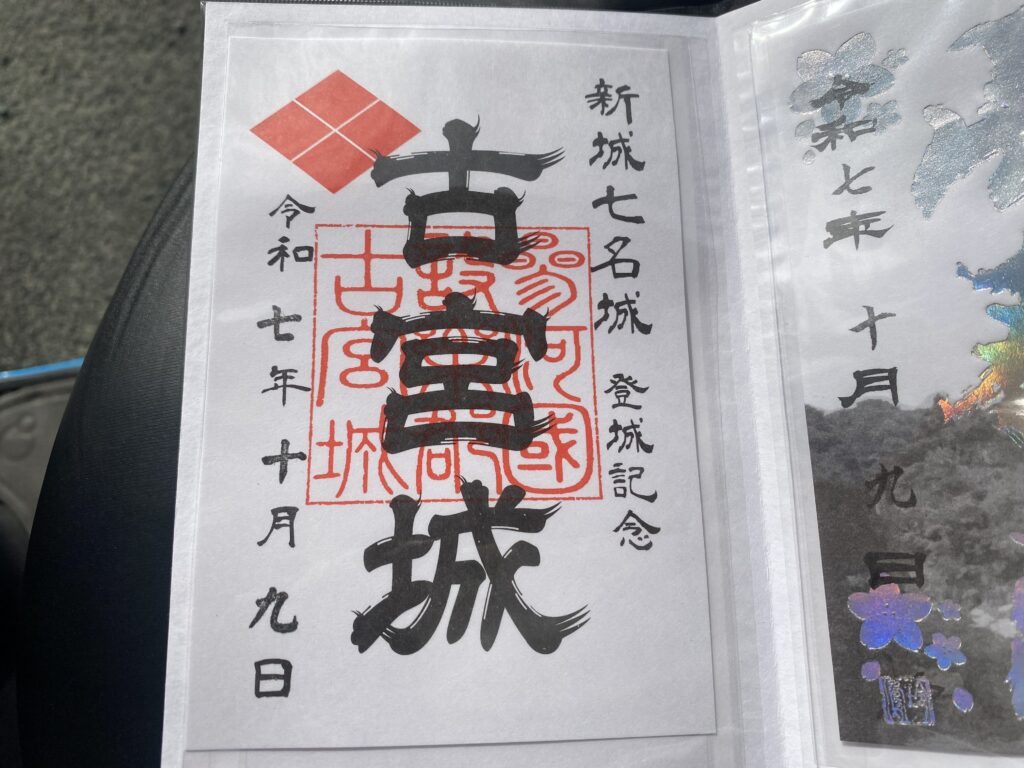 新城七名城 登城記念
古宮城
參河國
古宮城
令和 七年 十月 九日
令和七年 十月 九日